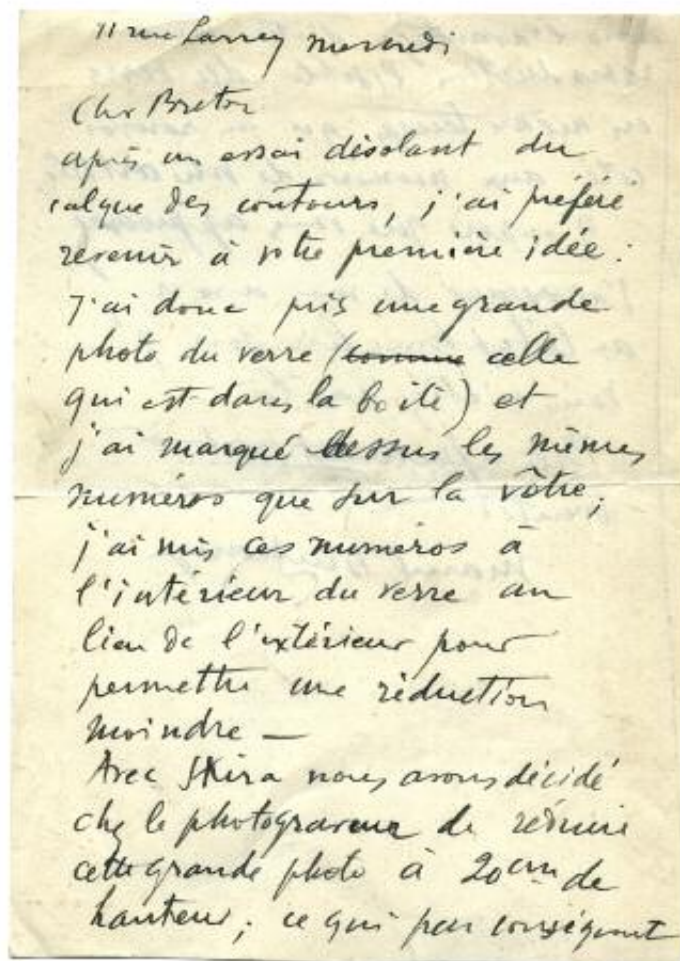 11 rue Larrey mercredi
Cher Breton
après un essai désolant du
calque des contours, j'ai préféré
revenir à votre première idée :
J'ai donc pris une grande
photo du verre (comme celle
qui est dans la boîte) et
j'ai marqué dessus les mêmes
numéros que sur la vôtre;
j'ai mis ces numéros à
l'intérieur du verre au
lieu de l'extérieur pour
permettre une réduction
moindre —
Avec Skira nous avons décidé
chez le photograveur de réduire
cette grande photo à 20cm de
hauteur; ce qui par conséquent